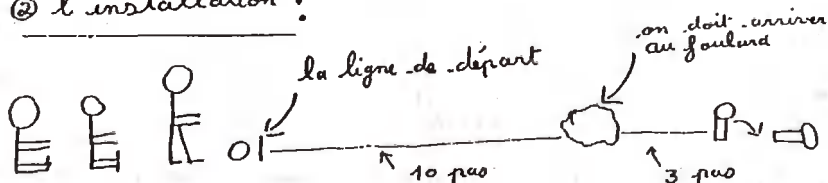 ② l'installation :
la ligne de départ
on doit arriver
au foulard
10 pas
3 pas